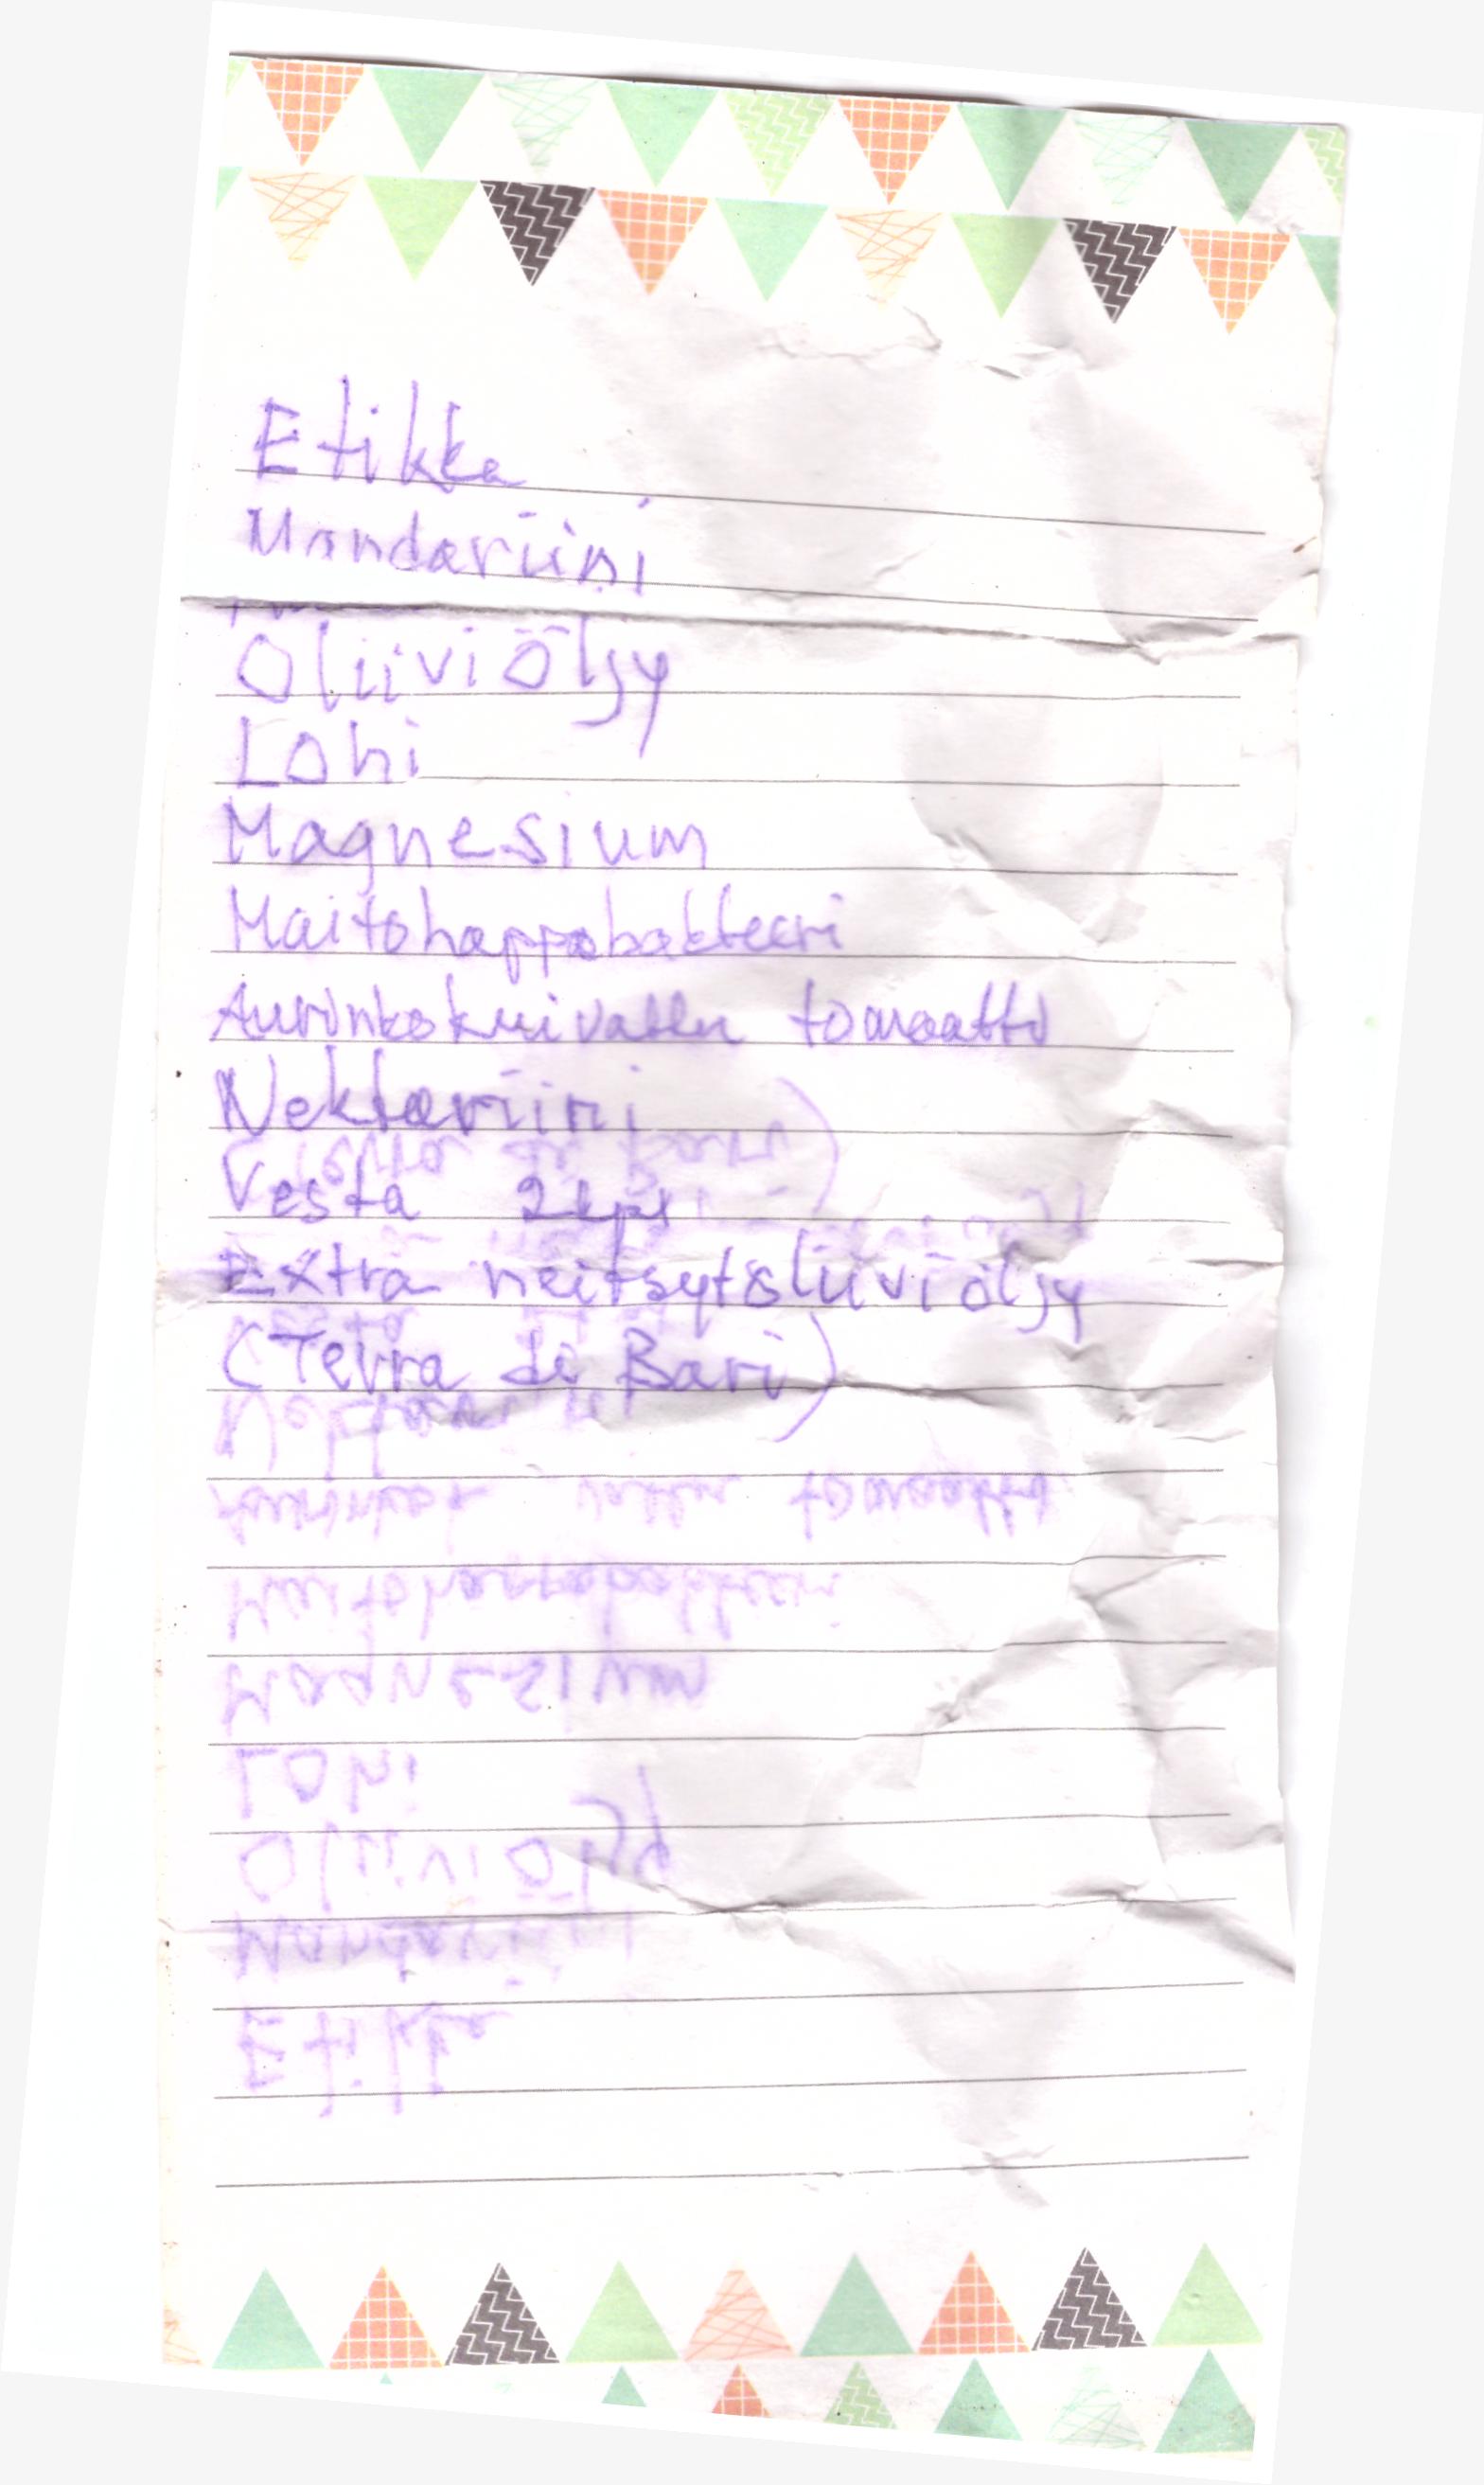 Etikka
Mandariini
Oliiviöljy
Lohi
Magnesium
Maitohappobakteeri
Aurinkokuivattu tomaatti
Nektariini
Vesta 2kpl
Extra neitsytoliiviöljy
(Terra di Bari)